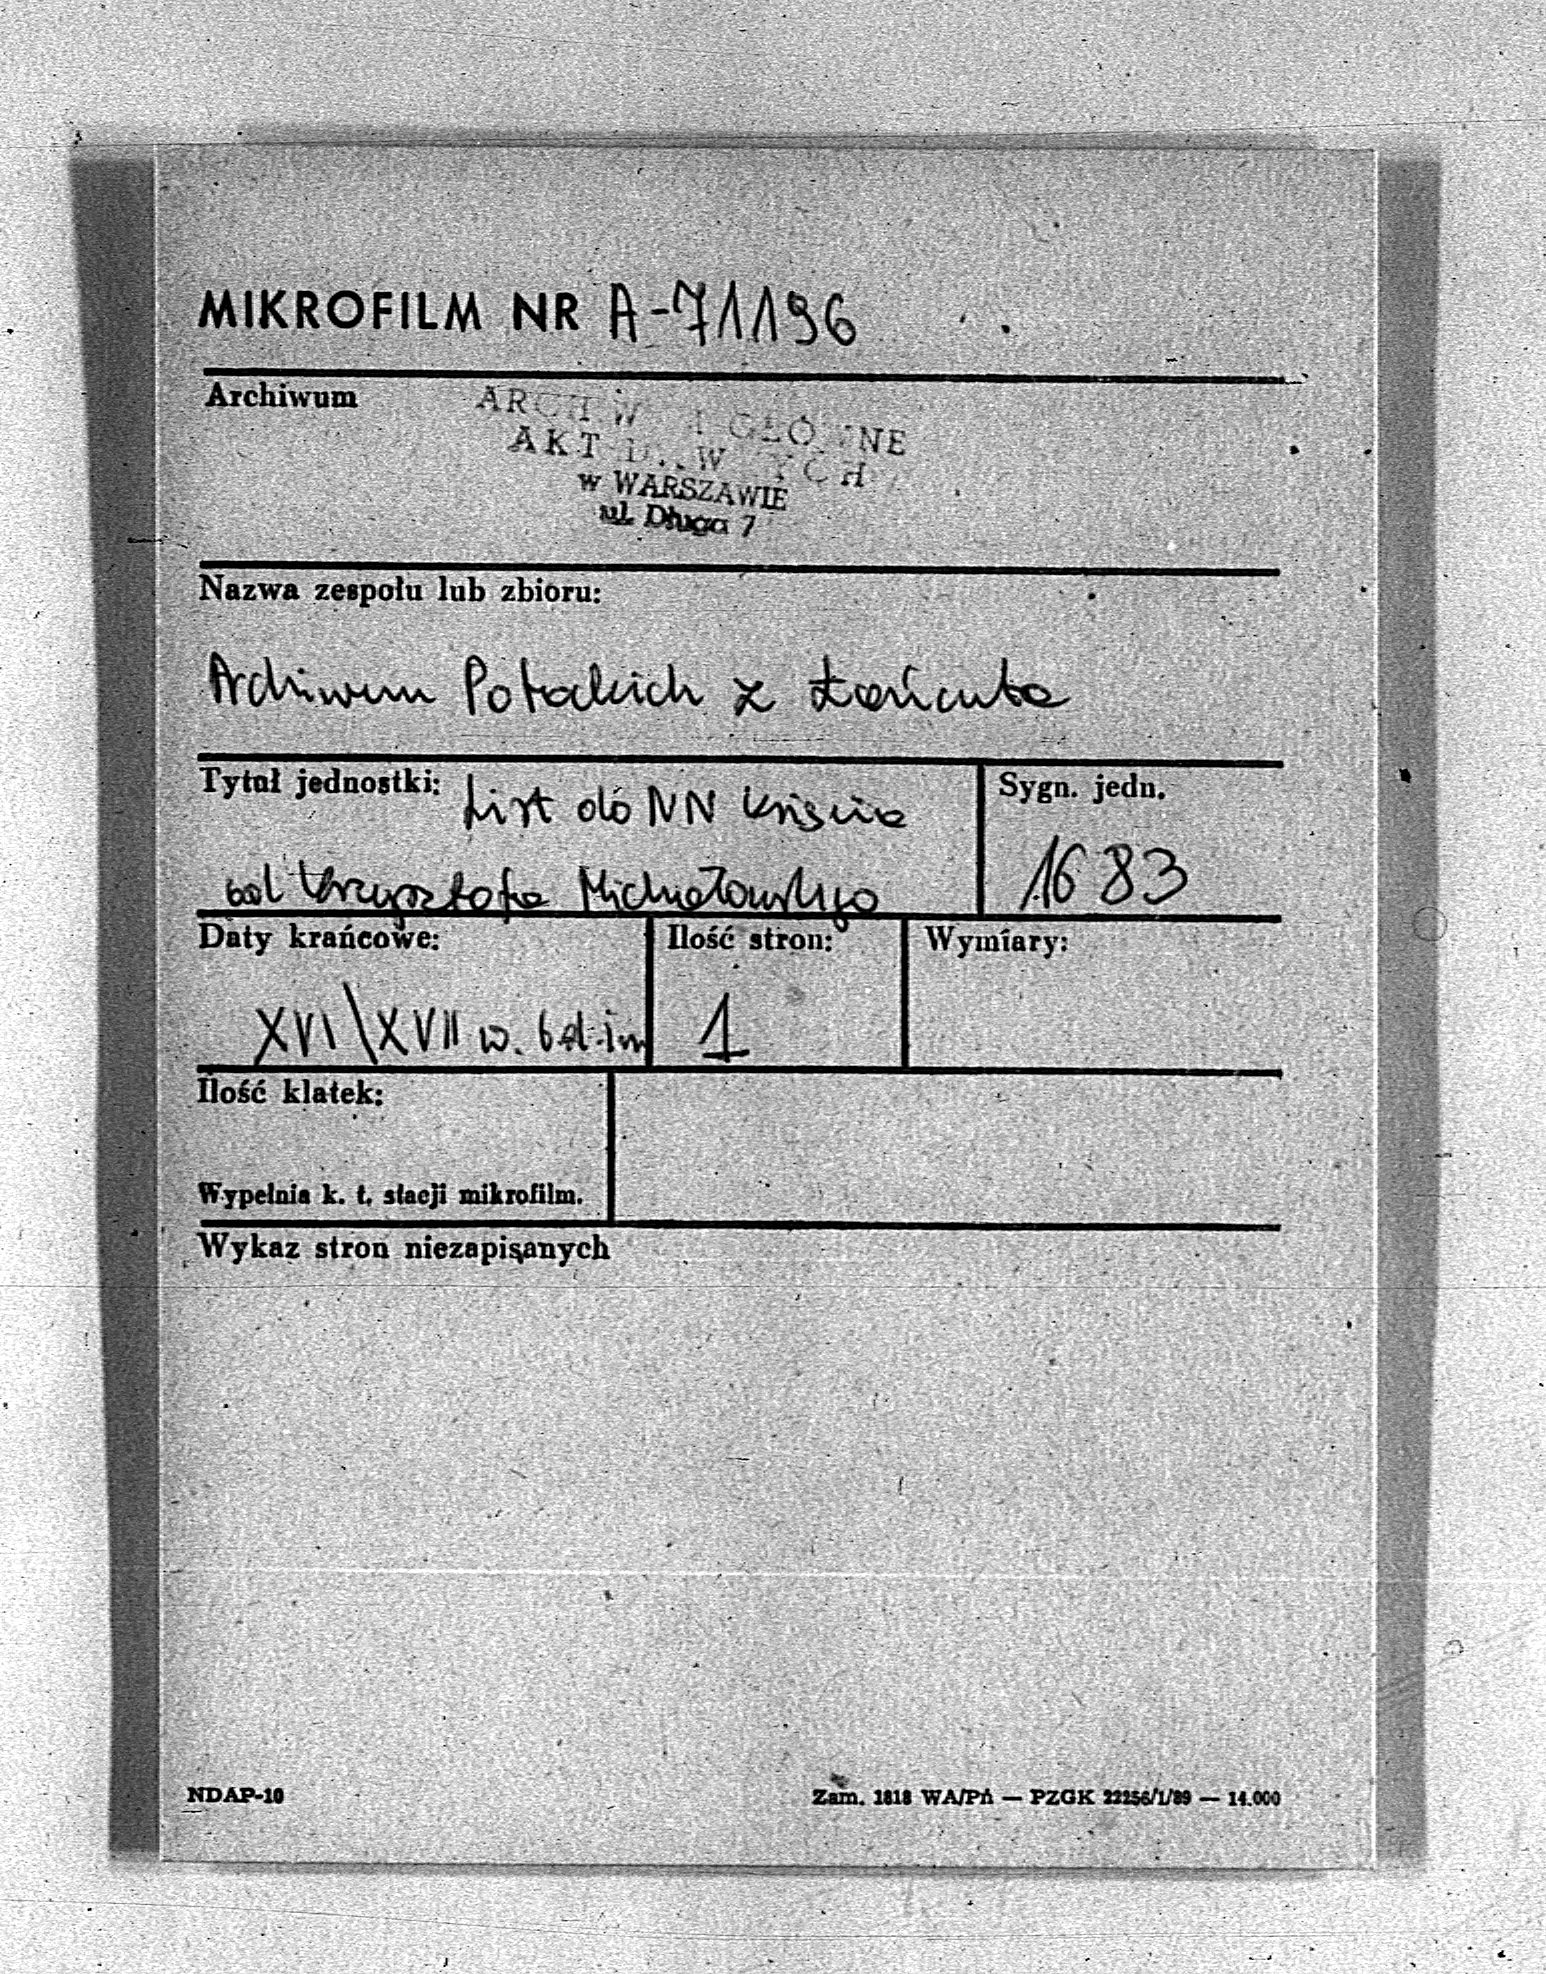 MIKROFILM NR A-71196
Archiwum
ARCHIWUM GŁÓWNE
AKT DAWNYCH
w WARSZAWIE
ul. Długa 7
Nazwa zespołu lub zbioru:
Archiwum Potockich z Łańcuta
Tytuł jednostki: List do NN księcia
od Krzysztofa Michałowskiego
Sygn. jedn.
1683
Daty krańcowe:
XVI\XVII w.
Ilość stron:
1
Wymiary:
Ilość klatek:
Wypełnia k. t. stacji mikrofilm.
Wykaz stron niezapisanych
NDAP-10
Zam. 1818 WA/Pń — PZGK 22256/1/89 — 14.000